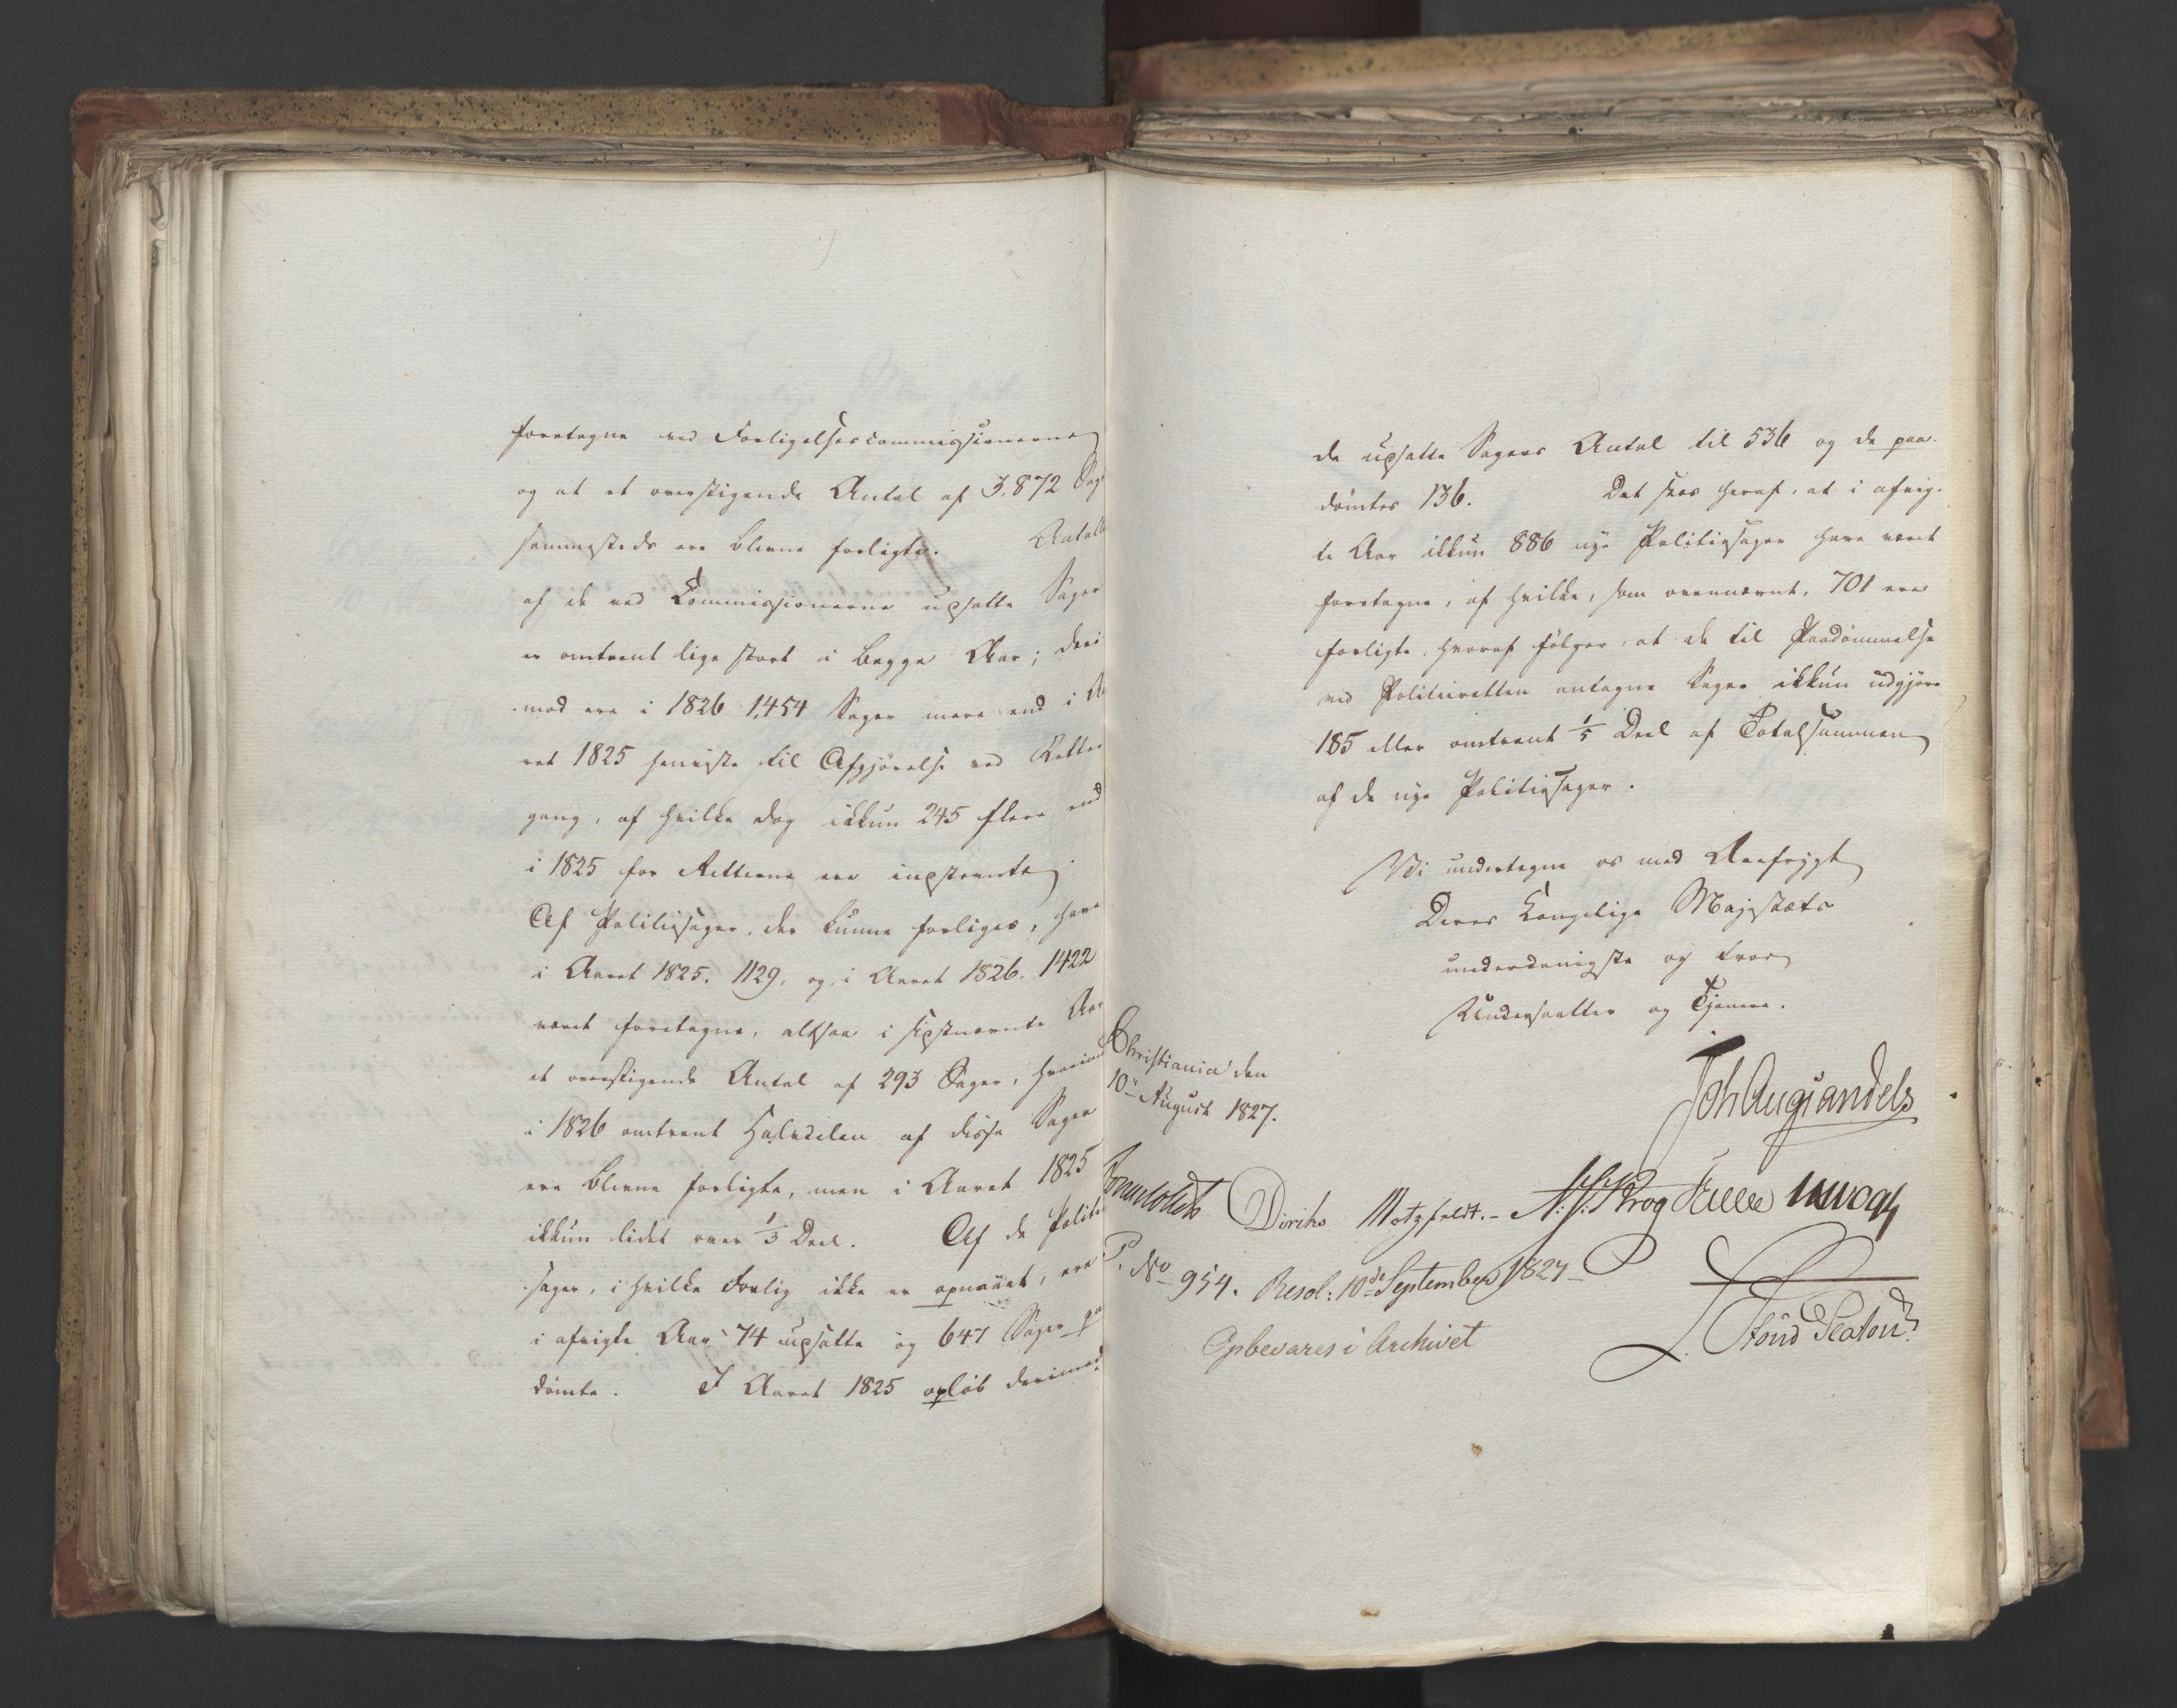 foretagne ved Forligelsescommissionerne
og at et overstigende Antal af 3,872 Sag
sammesteds ere blevne forligte. Antall
af de ved Commissionerne udsatte Sager
er omtrent lige stort i begge Aar; deri
mod ere i 1826 1,454 Sager mere end i A
ret 1825 henviste til Afgjørelse ved Retter
gang, af hvilke dog ikkun 245 flere end
i 1825 for Retterne ere inpstevnte
Af Politiesager, der kunne forliges, have
i Aaret 1825. 1129, og i Aaret 1826. 1422
været foretagne, altsaa i sidstnævnte Aar
et overstigende Antal af 293 Sager, hvorimod
i 1826 omtrent Halvdelen af disse Sager
ere blevne forligte, men i Aaret 1825
ikkun lidet over 1/3 Deel. Af de Politie
sager, i hvilke Forlig ikke er opnaaet, ere
i afvigte Aar 74 udsatte og 647 Sager paa
dømte. I Aaret 1825 opløb derimod
de udsatte Sagers Antal til 536 og de paa-
dømtes 136. Det sees heraf, at i afvig-
te Aar ikkun 886 nye Politiesager have været
foretagne, af hvilke, som ovennævnt, 701 ere
forligte, hvoraf følger, at de til Paadømmelse
ved Politieretten antagne Sager ikkun udgjøre
185 eller omtrent 1/5 Deel af Totalsummen
af de nye Politiesager.
Vi undertegne os med Ærefrygt
Deres Kongelige Majestæts
underdanigste og troe
Undersaatter og Tjenere.
Christiania den
10de August 1827.
Joh Aug Sandels
Diriks Motzfeldt. Krog
P. No 954. Resol: 10de September 1827
Opbevares i Archivet